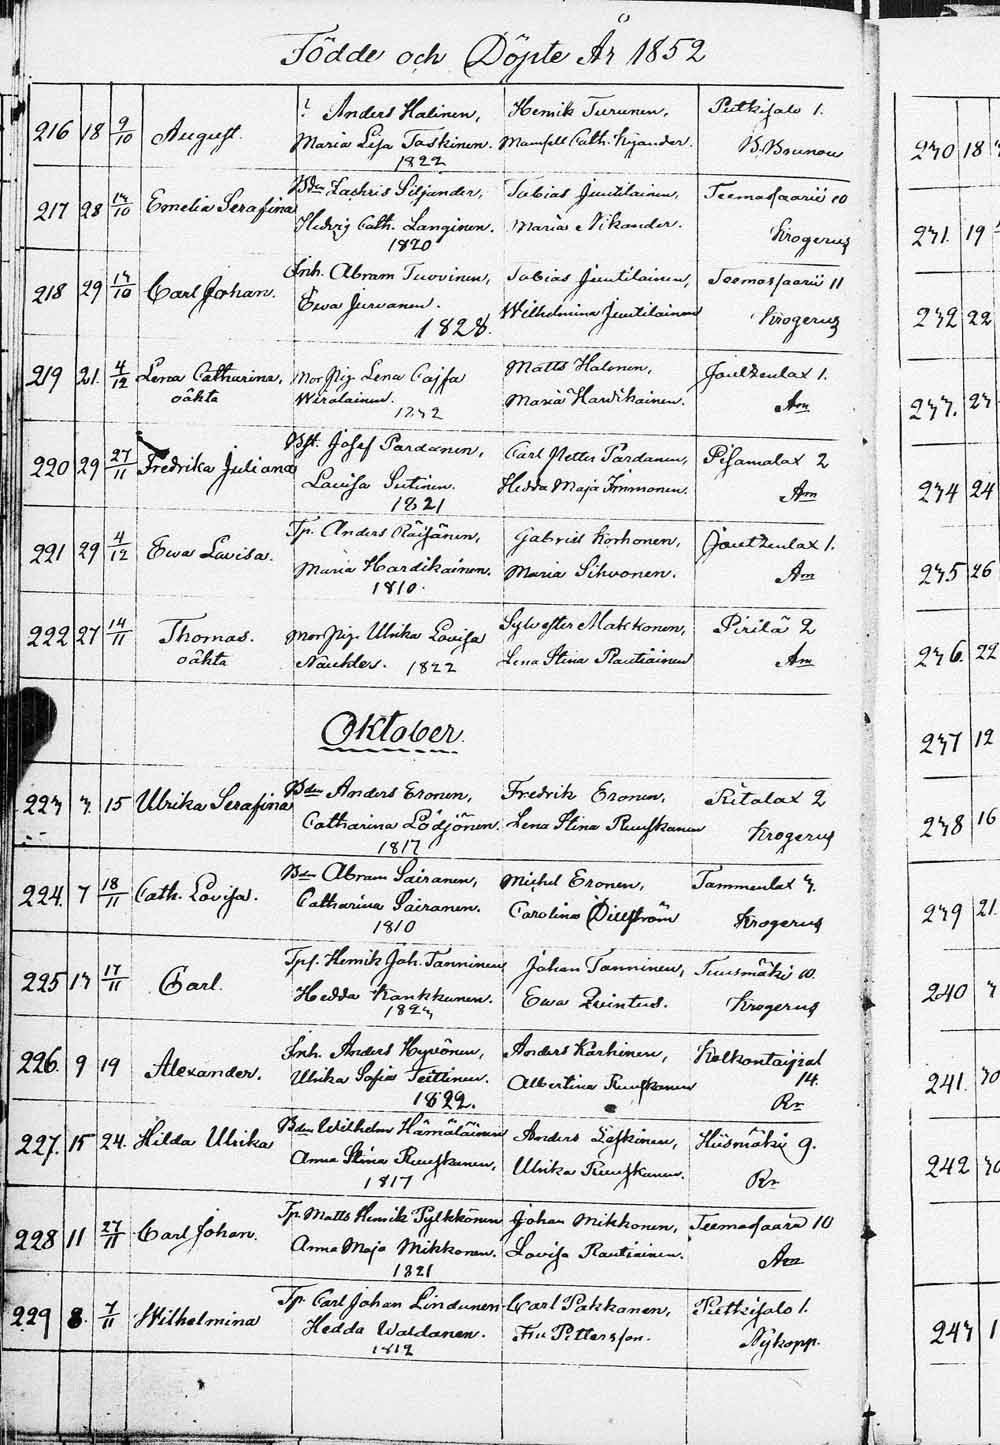 Födde och Döpte År 1852
216 18 9/10 August. ? Anders Halinen, Henrik Turunen, Putkisalo 1.
Maria Lisa Taskinen. Mamsell Cath. Kyander. B. Brunou
1822
217 28 13/10 Emelia Serafina Bdn Zachris Siljander, Tobias Juutilainen, Teemassaari 10
Hedvig Cath. Langinen. Maria Nikander. Krogerus
1820
218 29 13/10 Carl Johan. Inh. Abram Tuovinen, Tobias Juutilainen, Teemassaari 11
Ewa Jurvanen. Wilhelmina Juutilainen Krogerus
1828.
219 21. 4/12 Lena Catharina, Mor Pig. Lena Cajsa Matts Halonen, Joutzenlax 1.
oäkta Wiralainen. Maria Hardikainen. Am
1832
220 29 27/11 Fredrika Juliana Bst. Josef Pardanen, Carl Petter Pardanen, Pisamalax 2
Lovisa Sutinen. Hedda Maja Immonen. Am
1821
221 29 4/12 Ewa Lovisa. Tp. Anders Räisänen, Gabriel Korhonen, Joutzenlax 1.
Maria Hardikainen. Maria Sihvonen. Am
1810.
222 27 14/11 Thomas. Mor Pig. Ulrika Lovisa Sylvester Makkonen, Pirilä 2
oäkta Naukler. 1822 Lena Stina Rautiainen Am
Oktober.
223 3. 15 Ulrika Serafina Bdn Anders Eronen, Fredrik Eronen, 2
Catharina Lödjönen. Lena Stina Ruuskanen Krogerus
1817
224. 7 18/11 Cath. Lovisa. Bdn Abram Sairanen, Michel Eronen, Tammenlax 3.
Catharina Sairanen. Carolina Dillström Krogerus
1810
225 13 17/11 Carl. Tps. Henrik Joh. Tanninen, Johan Tanninen, Tuusmäki 10.
Hedda Kankkunen. Ewa Qvintus. Krogerus
1823
226. 9 19 Alexander. Inh. Anders Hyvönen, Anders Karhinen, Kolkontaipal
Ulrika Sofia Teittinen. Albertina Ruuskanen 14.
1822. Rn
227. 15 24. Hilda Ulrika Bdn Wilhelm Hämäläinen Anders Laskinen, Hiismäki 9.
Anna Stina Ruuskanen, Ulrika Ruuskanen. Rn
1817
228 11 27/11 Carl Johan. Tp. Matts Henrik Pylkkönen Johan Mikkonen, Teemassaari 10
Anna Maja Mikkonen. Lovisa Rautiainen. Am
1821
229 8. 7/11 Wilhelmina Tp. Carl Johan Lindunen Carl Pakkanen, Putkisalo 1.
Hedda Waldanen. Fru Pettersson. Nykopp.
1812
230 18
231. 19
232 22
233. 23
234 24
235 26
236. 22
237 12
238 16
239 21.
240 3
241. 30
242 30
243 1